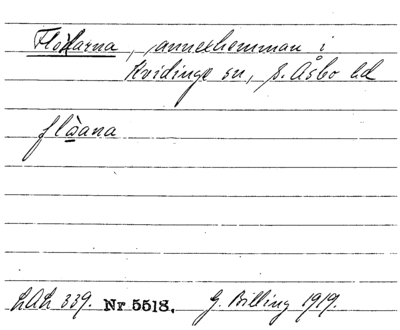 Flötarna, annexhemman i
Kvidinge sn, S. Åsbo hd
flåana
LAL 339. Nr 5518. G. Billing 1919.